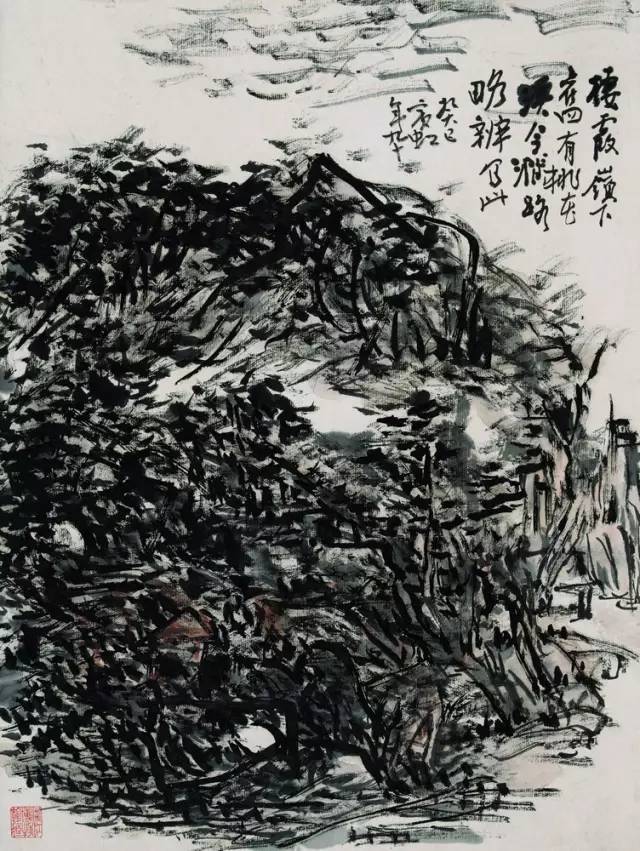 棲霞嶺下
有桃花
溪今湮路
略辨写此
癸巳
賓虹
年九十